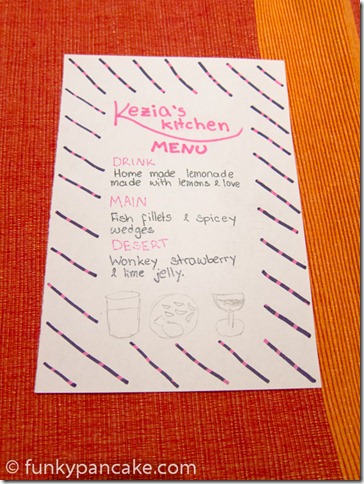 Kezia's
kitchen
MENU
DRINK
Home made lemonade
made with lemons & love
MAIN
Fish fillets & spicey
wedges
DESERT
Wonkey strawberry
& lime jelly.
© funkypancake.com